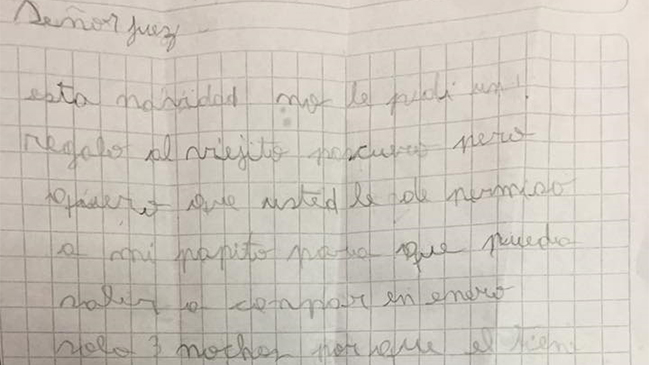 Señor juez
esta navidad no le pedi un
regalo al viejito pascuero pero
quiero que usted le de permiso
a mi papito para que pueda
salir a compar en enero
solo 3 noches porque el tien